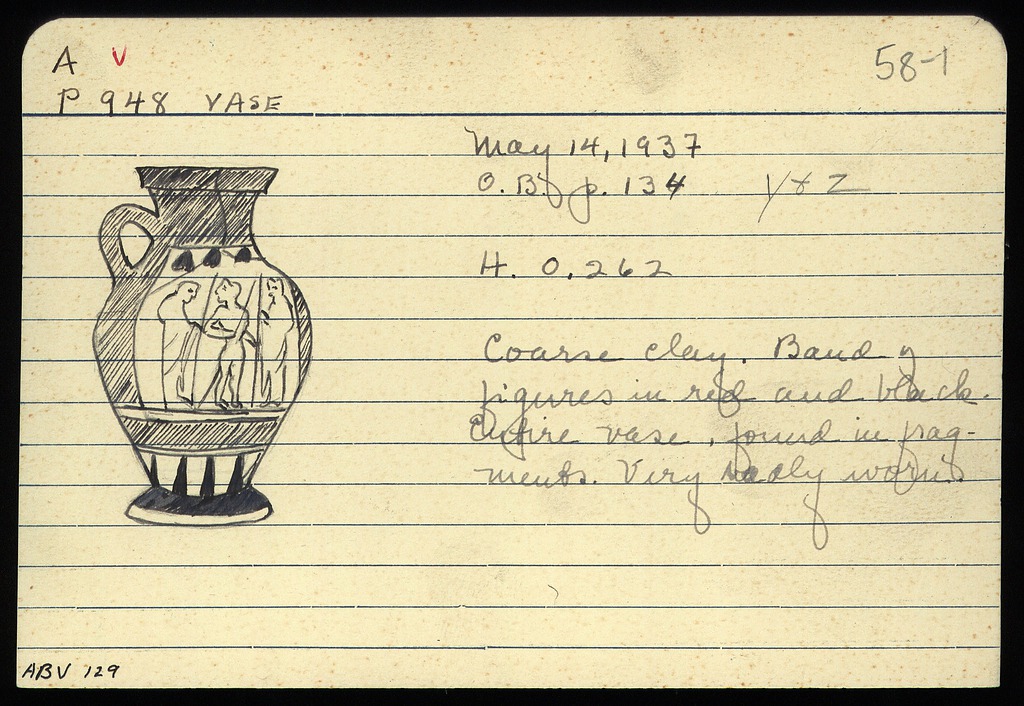 A V
58-1
P 948 VASE
May 14, 1937
O.B. p. 134 y x z
H. 0.262
Coarse clay. Band of
figures in red and black.
Entire vase, found in frag-
ments. Very badly worn.
ABV 129